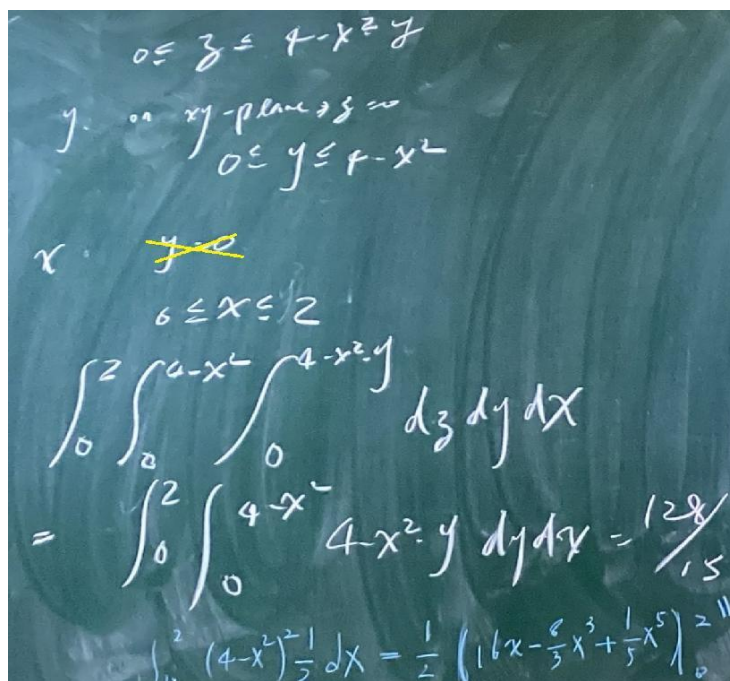 0 ≤ z ≤ 4-x²-y
y. on xy-plane, z=0
0 ≤ y ≤ 4-x²
x. y=0
0 ≤ x ≤ 2
∫₀² ∫₀^(4-x²) ∫₀^(4-x²-y) dz dy dx
= ∫₀² ∫₀^(4-x²) 4-x²-y dy dx = 128/15
∫₀² (4-x²)² 1/2 dx = 1/2 (16x - 8/3 x³ + 1/5 x⁵) |₀² "